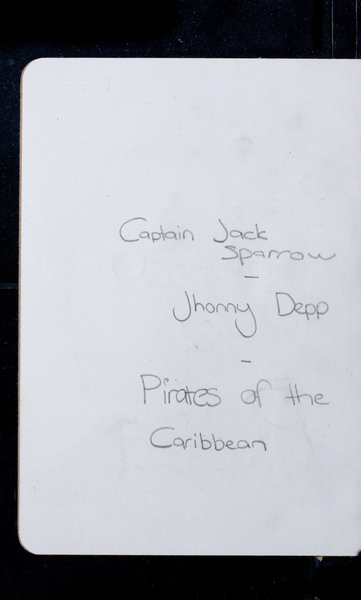 Captain Jack
Sparrow
-
Jhonny Depp
-
Pirates of the
Caribbean